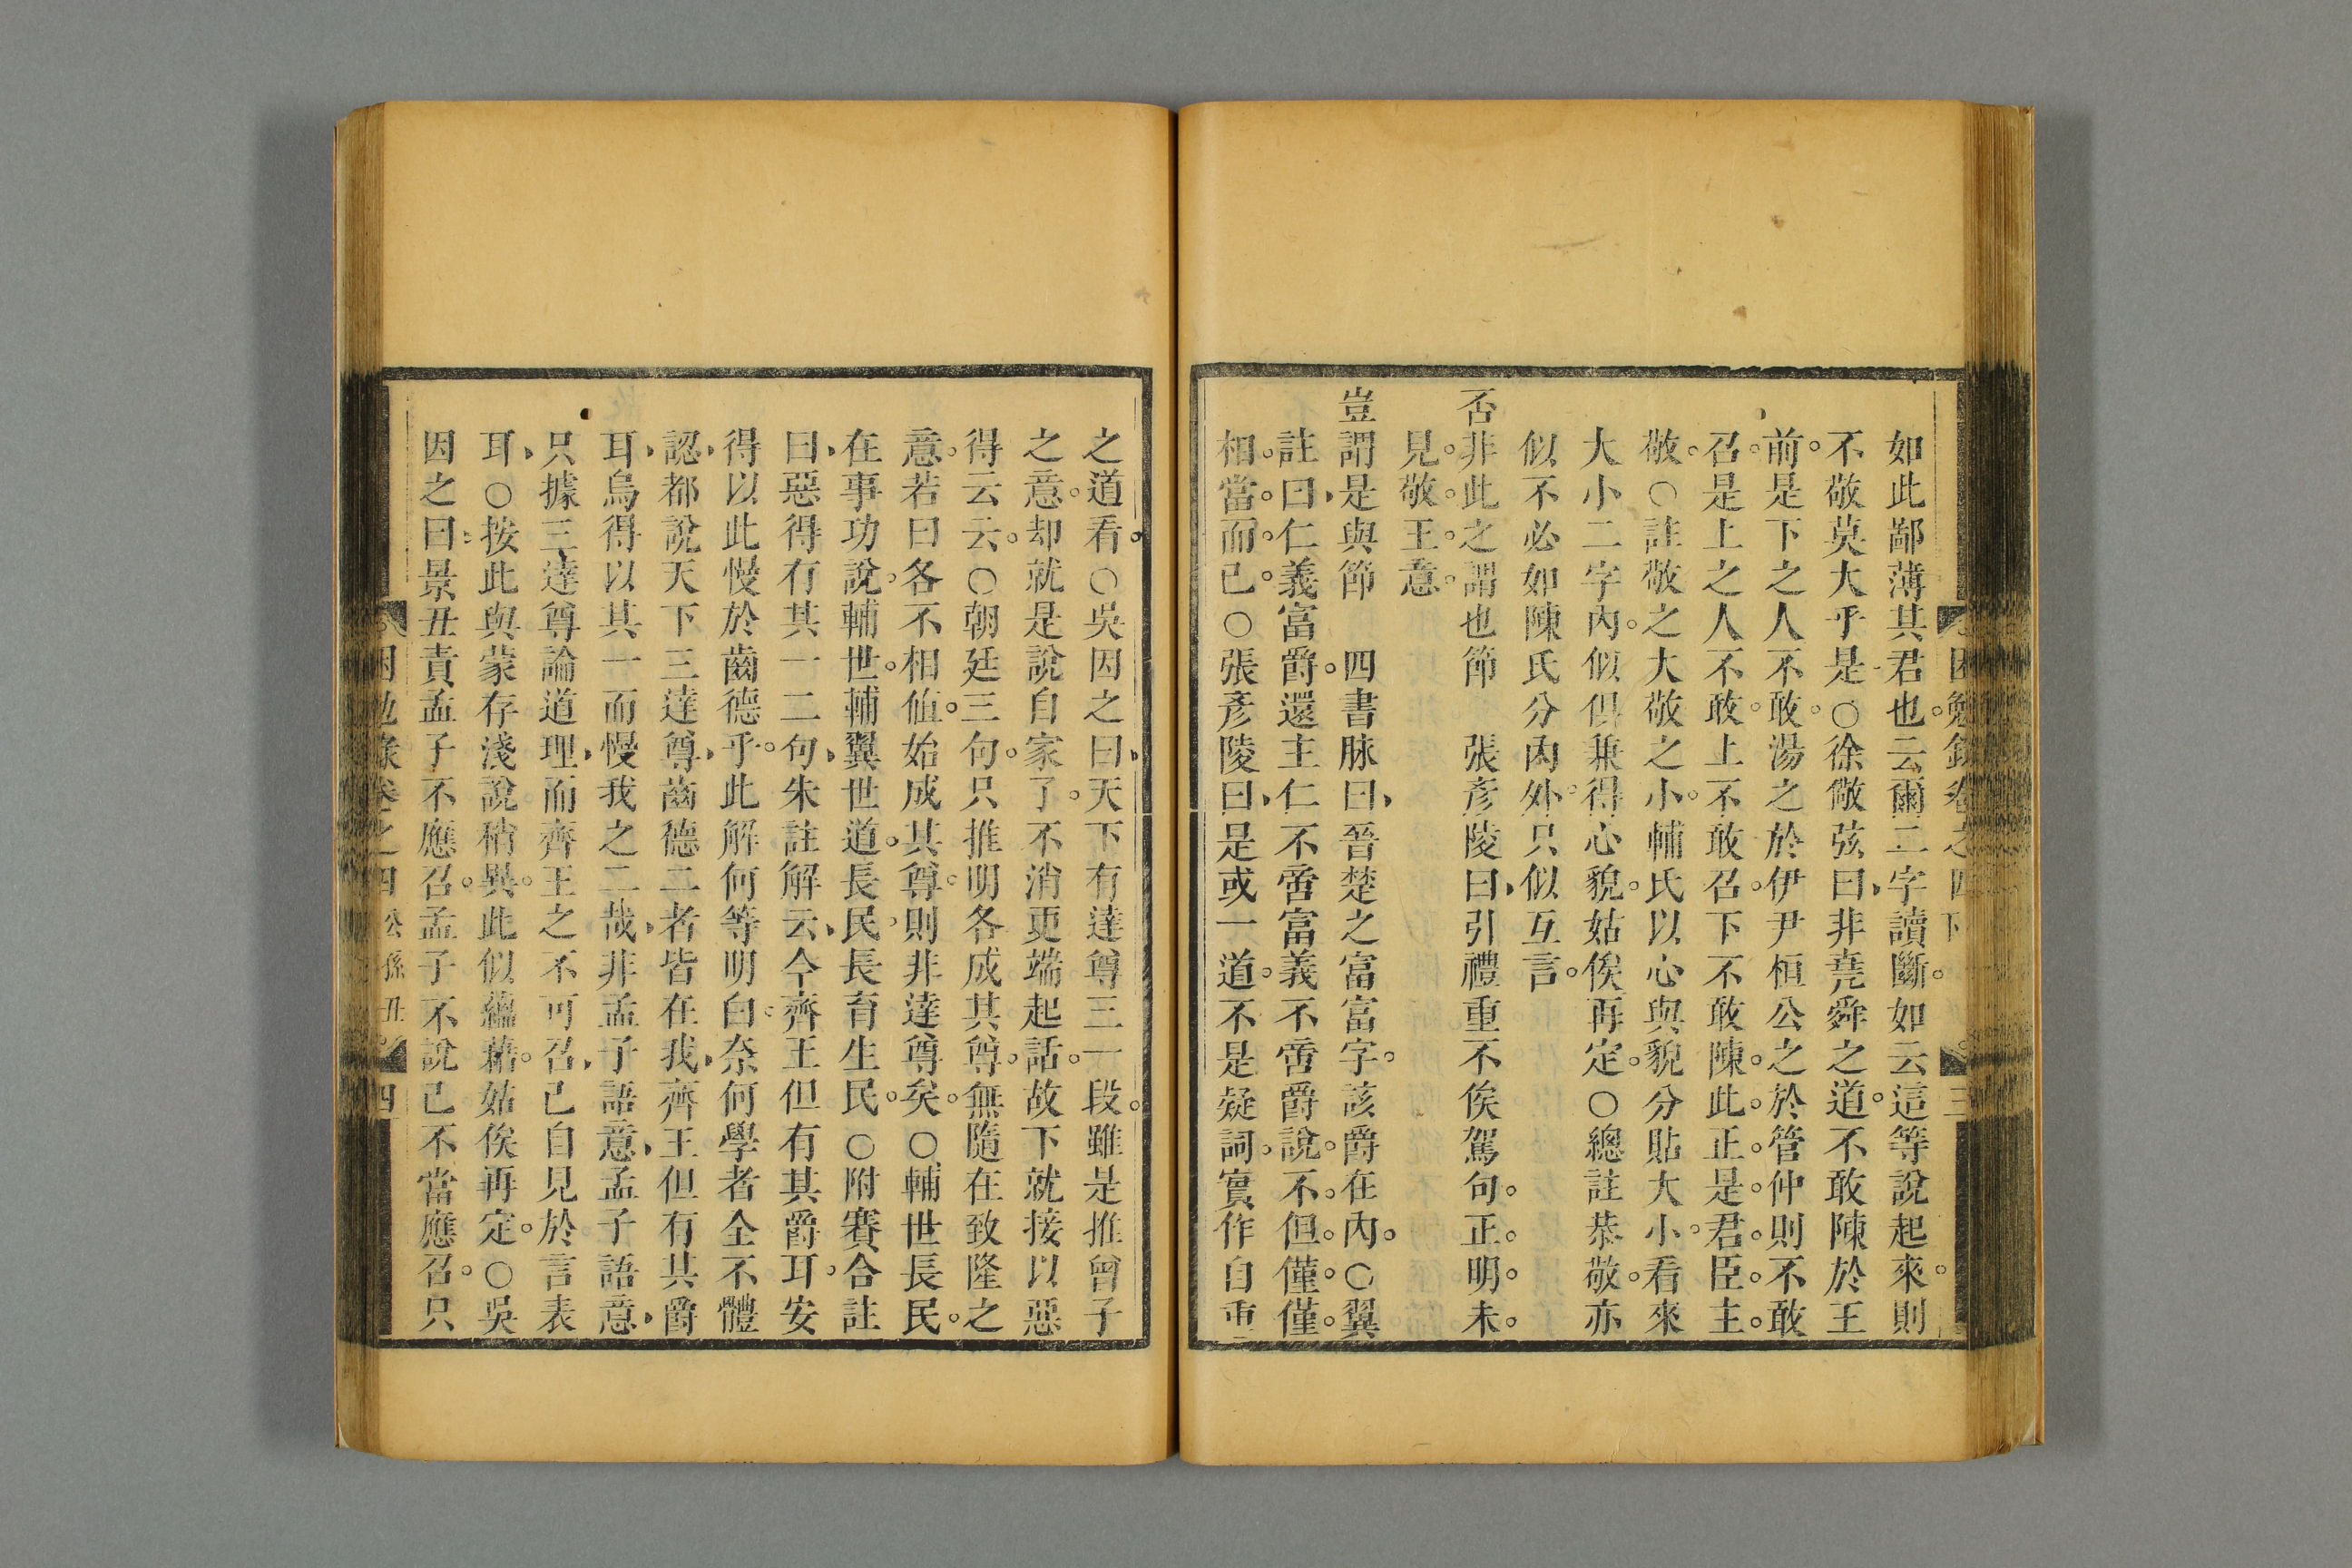 因勉錄卷之四下 三
如此鄙薄其君也云爾二字讀斷如云這等說起來則
不敬莫大乎是○徐儆弦曰非堯舜之道不敢陳於王
前是下之人不敢湯之於伊尹桓公之於管仲則不敢
召是上之人不敢上不敢召下不敢陳此正是君臣主
敬○註敬之大敬之小輔氏以心與貌分貼大小看來
大小二字內似俱兼得心貌姑俟再定○總註恭敬亦
似不必如陳氏分內外只似互言
否非此之謂也節 張彥陵曰引禮重不俟駕句正明未
見敬王意
豈謂是與節 四書脉曰晉楚之富富字該爵在內○翼
註曰仁義富爵還主仁不啻富義不啻爵說不但僅僅
相當而已○張彥陵曰是或一道不是疑詞實作自重
之道看○吳因之曰天下有達尊三一段雖是推曾子
之意却就是說自家了不消更端起話故下就接以惡
得云云○朝廷三句只推明各成其尊無隨在致隆之
意若曰各不相値始成其尊則非達尊矣○輔世長民
在事功說輔世輔翼世道長民長育生民○附賽合註
曰惡得有其一二句朱註解云今齊王但有其爵耳安
得以此慢於齒德乎此解何等明白奈何學者全不體
認都說天下三達尊齒德二者皆在我齊王但有其爵
耳烏得以其一而慢我之二哉非孟子語意孟子語意
只據三達尊論道理而齊王之不可召已自見於言表
耳○按此與蒙存淺說稍異此似蘊藉姑俟再定○吳
因之曰景丑責孟子不應召孟子不說已不當應召只
因勉錄卷之四 公孫丑 四